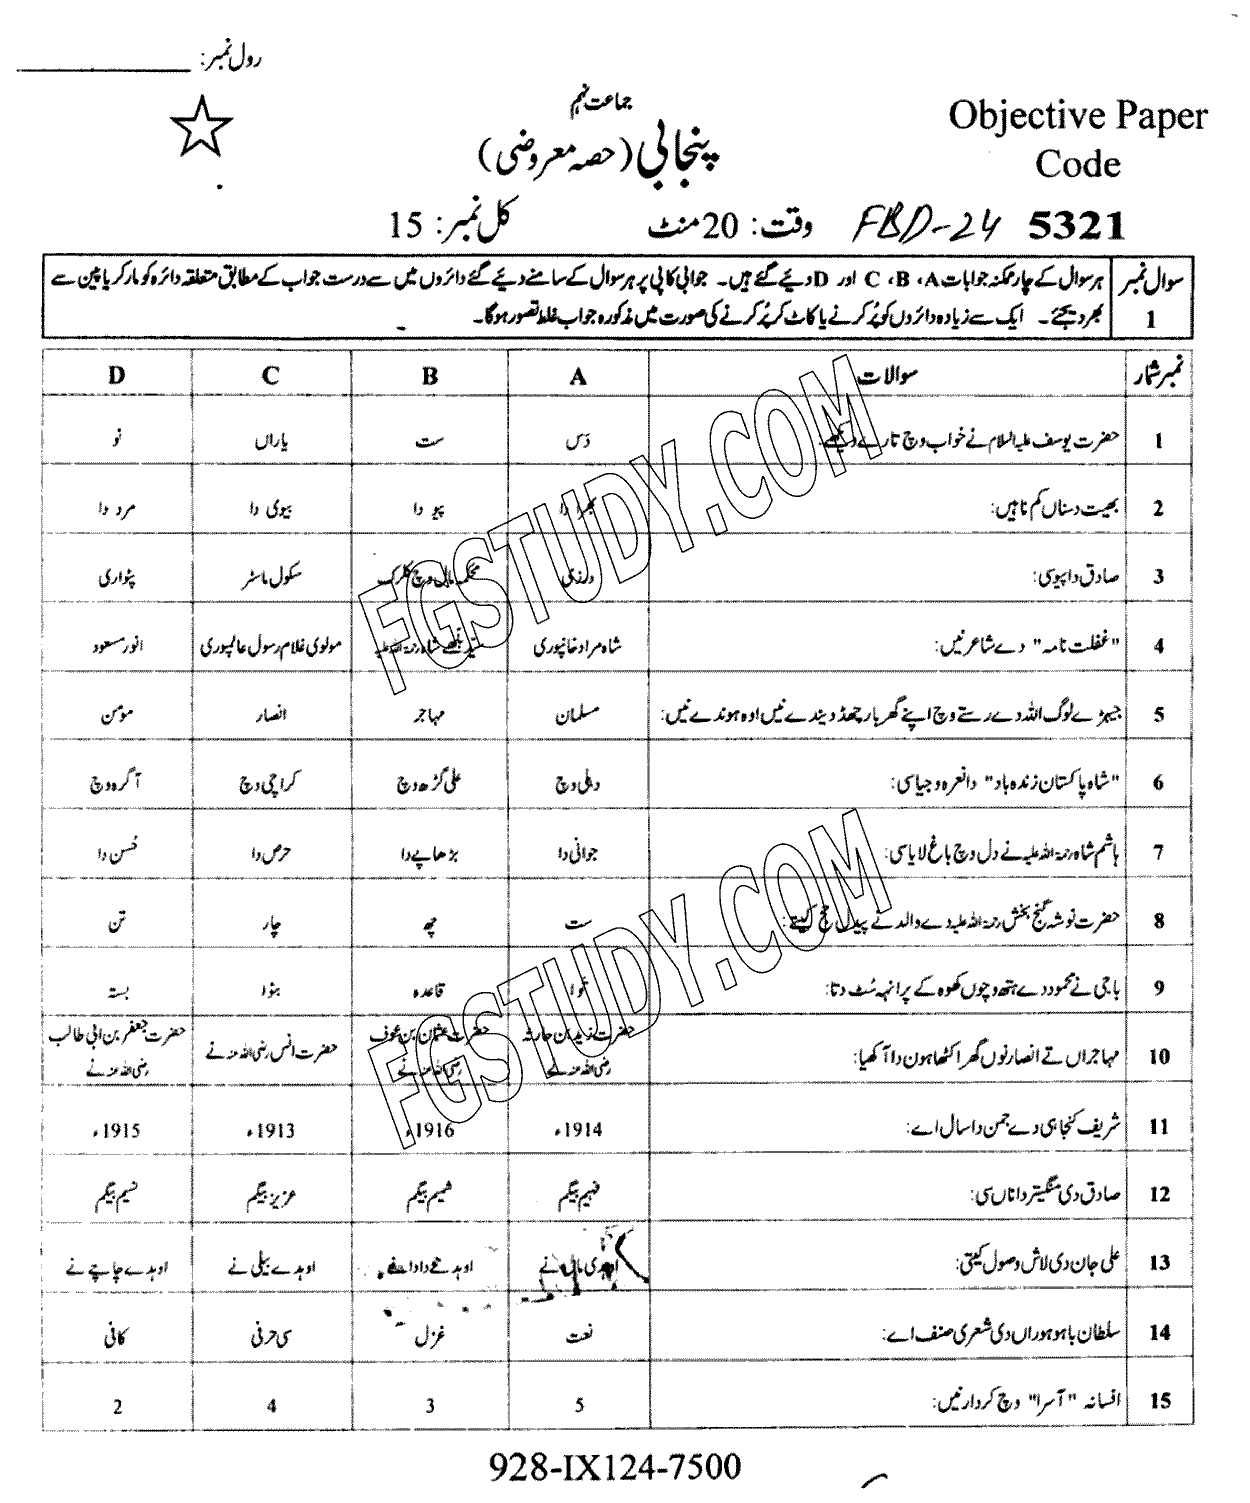 رول نمبر: ____________
جماعت نہم
Objective Paper
Code
پنجابی (حصہ معروضی)
5321 FBD-24 وقت: 20 منٹ کل نمبر: 15
سوال نمبر 1
ہر سوال کے چار ممکنہ جوابات A، B، C اور D دیئے گئے ہیں۔ جوابی کاپی پر ہر سوال کے سامنے دیئے گئے دائروں میں سے درست جواب کے مطابق متعلقہ دائرہ کو مارکر یا پین سے
بھر دیجئے۔ ایک سے زیادہ دائروں کو پُر کرنے یا کاٹ کر پُر کرنے کی صورت میں مذکورہ جواب غلط تصور ہوگا۔
نمبر شمار سوالات A B C D
1 حضرت یوسف علیہ السلام نے خواب وچ تارے ویکھے: دَس ست یاراں نو
2 بھیت دسناں کم ناہیں: بھرا دا پیو دا بیوی دا مرد دا
3 صادق دا پیو سی: درزی محکمہ مال وچ کلرک سکول ماسٹر پٹواری
4 "غفلت نامہ" دے شاعر نیں: شاہ مراد خانپوری سید بلھے شاہ رحمۃ اللہ علیہ مولوی غلام رسول عالمپوری انور مسعود
5 جیہڑے لوگ اللہ دے رستے وچ اپنے گھر بار چھڈ دیندے نیں اوہ ہوندے نیں: مسلمان مہاجر انصار مومن
6 "شاہ پاکستان زندہ باد" دا نعرہ وجیا سی: دہلی وچ علی گڑھ وچ کراچی وچ آگرہ وچ
7 ہاشم شاہ رحمۃ اللہ علیہ نے دل وچ باغ لایا سی: جوانی دا بڑھاپے دا حرص دا حُسن دا
8 حضرت نوشہ گنج بخش رحمۃ اللہ علیہ دے والد نے پیدل حج کیتے: ست چھ چار تن
9 باجی نے محمود دے ہتھ وچوں کھوہ کے پرانہہ سُٹ دتا: قاعدہ بٹوا بستہ
10 مہاجراں تے انصار نوں گھر اکٹھا ہون دا آکھیا: حضرت زید بن حارثہ رضی اللہ عنہ نے حضرت عثمان بن عوف رضی اللہ عنہ نے حضرت انس رضی اللہ عنہ نے حضرت جعفر بن ابی طالب رضی اللہ عنہ نے
11 شریف کنجاہی دے جمن دا سال اے: 1914ء 1916ء 1913ء 1915ء
12 صادق دی منگیتر دا ناں سی: فہیم بیگم شمیم بیگم عزیز بیگم نسیم بیگم
13 علی جان دی لاش وصول کیتی: اوہدی ماں نے اوہدے دادا نے اوہدے بیلی نے اوہدے چاچے نے
14 سلطان باہو ہوراں دی شعری صنف اے: نعت غزل سی حرفی کافی
15 افسانہ "آسرا" وچ کردار نیں: 5 3 4 2
FGSTUDY.COM
FGSTUDY.COM
928-IX124-7500